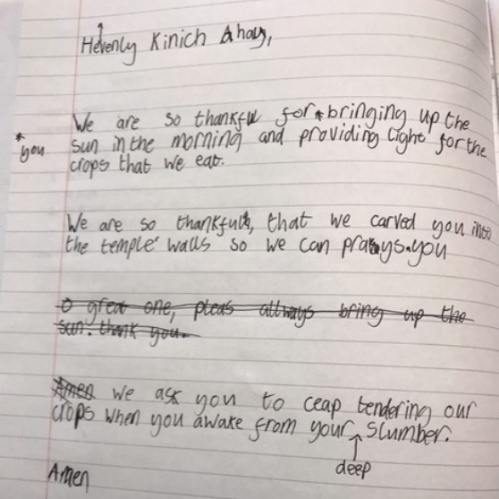 Hevenly Kinich Ahau,
We are so thankful for * bringing up the
* you
sun in the morning and providing light for the
crops that we eat.
We are so thankfull, that we carved you into
the temple walls so we can prays you
O great one, pleas allways bring up the
sun. thank you.
Amen we ask you to ceap tendering our
crops when you awake from your slumber.
deep
Amen